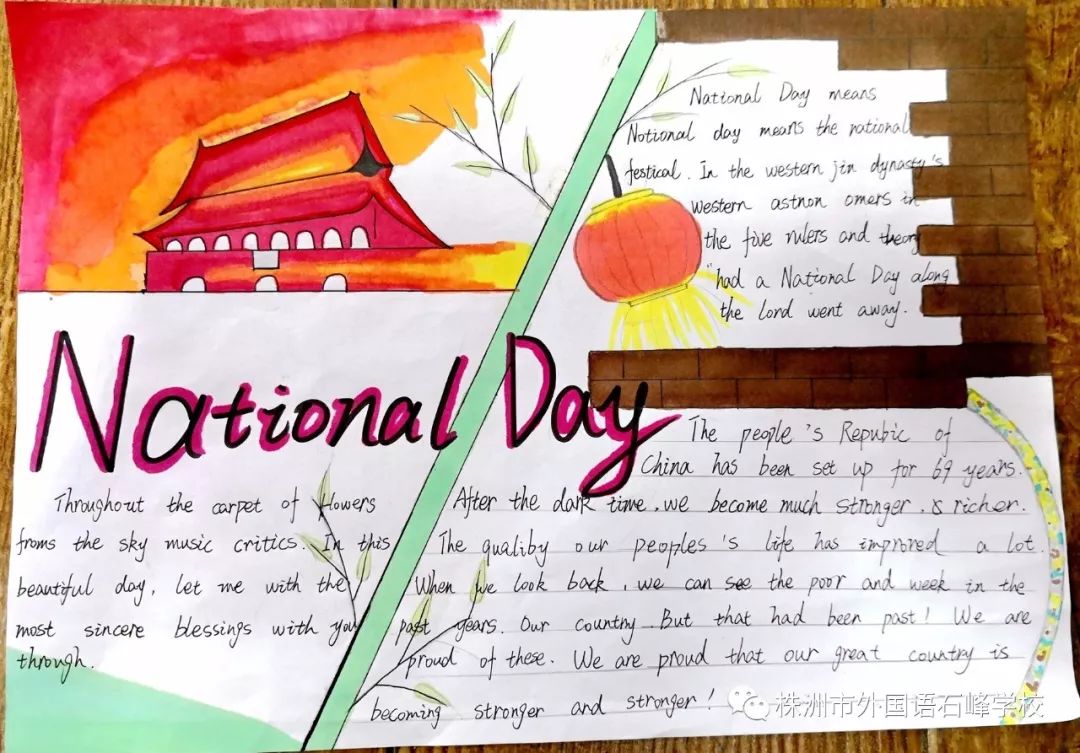 National Day
Throughout the carpet of flowers
froms the sky music critics. In this
beautiful day, let me with the
most sincere blessings with you
through.
National Day means
Notional day means the national
festical. In the western jin dynasty's
western astnon omers in
the five rulers and theory
"had a National Day along
the lord went away.
The people's Repubic of
China has been set up for 69 years.
After the dark time, we become much stronger. & richer.
The qualiby our peoples's life has improred a lot.
When we look back, we can see the poor and week in the
past years. Our country. But that had been past! We are
proud of these. We are proud that our great country is
becoming stronger and stronger!
株洲市外国语石峰学校